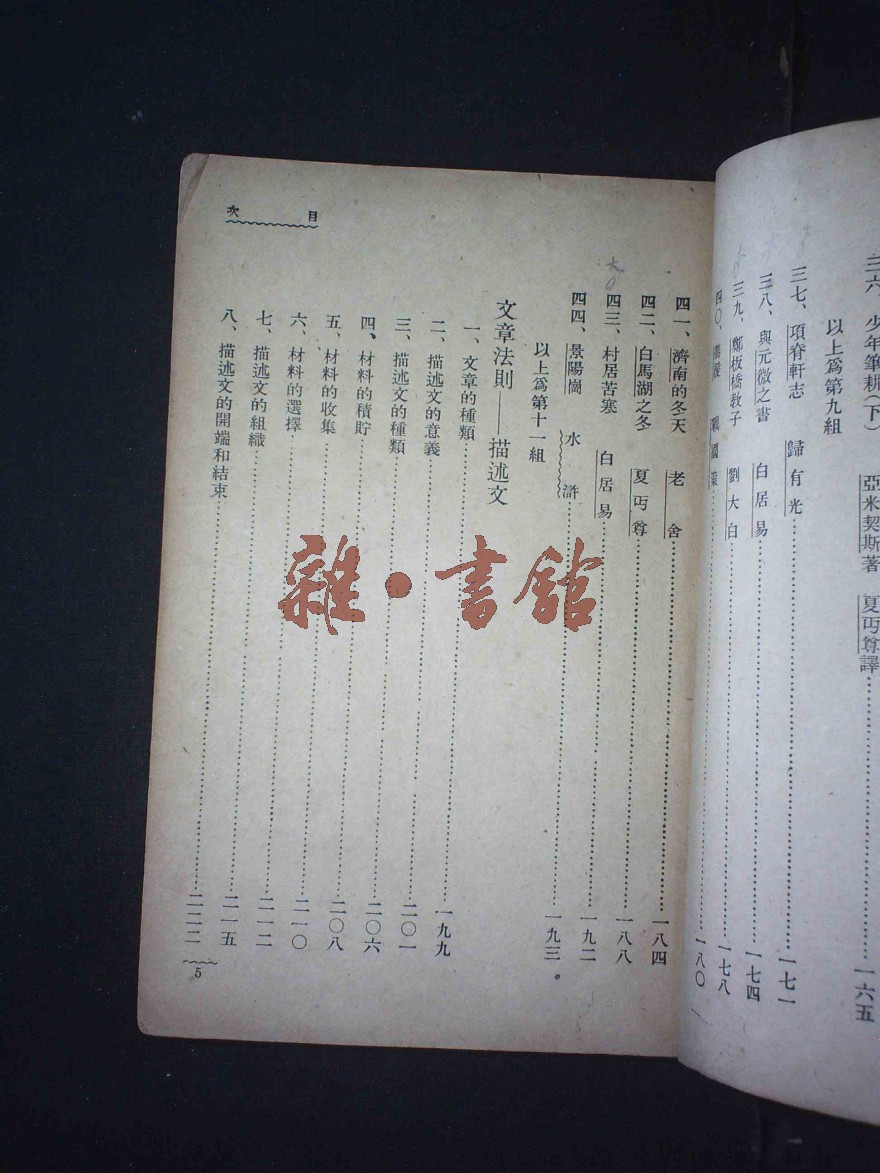 三六、少年筆耕(下) 亞米契斯著 夏丏尊譯……一六五
以上爲第九組
三七、項脊軒志 歸有光……一七一
三八、與元微之書 白居易……一七四
三九、鄭板橋教子 劉大白……一七八
四〇、 戰國策……一八〇
四一、濟南的冬天 老舍……一八四
四二、白馬湖之冬 夏丏尊……一八八
四三、村居苦寒 白居易……一九二
四四、景陽崗 水滸……一九三
以上爲第十一組
文章法則——描述文
一、文章的種類……一九九
二、描述文的意義……二〇一
三、描述文的種類……二〇六
四、材料的積貯……二〇八
五、材料的收集……二一〇
六、材料的選擇……二一二
七、描述文的組織……二一五
八、描述文的開端和結束……二二二
目次
5
雜·書館